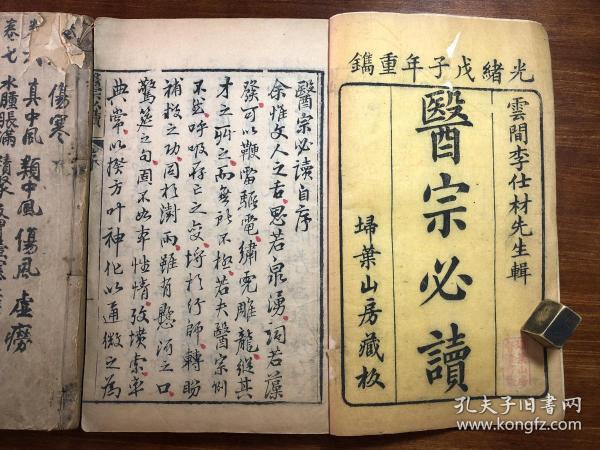 光緒戊子年重鐫
雲間李仕材先生輯
醫宗必讀
埽葉山房藏板
醫宗必讀自序
余惟文人之舌思若泉湧詞若藻
發可以鞭雷驅電繡虎雕龍縱其
才之所之而無所不極若夫醫宗則
不然呼吸存亡之變埒於行師轉盼
補救之功同於澍雨雖有懸河之口
驚筵之句固不如本性情攷墳索率
典常以揆方叶神化以通微之為
傷寒
真中風 類中風 傷風 虛癆
卷七 水腫脹滿
孔夫子旧书网
www.kongfz.com